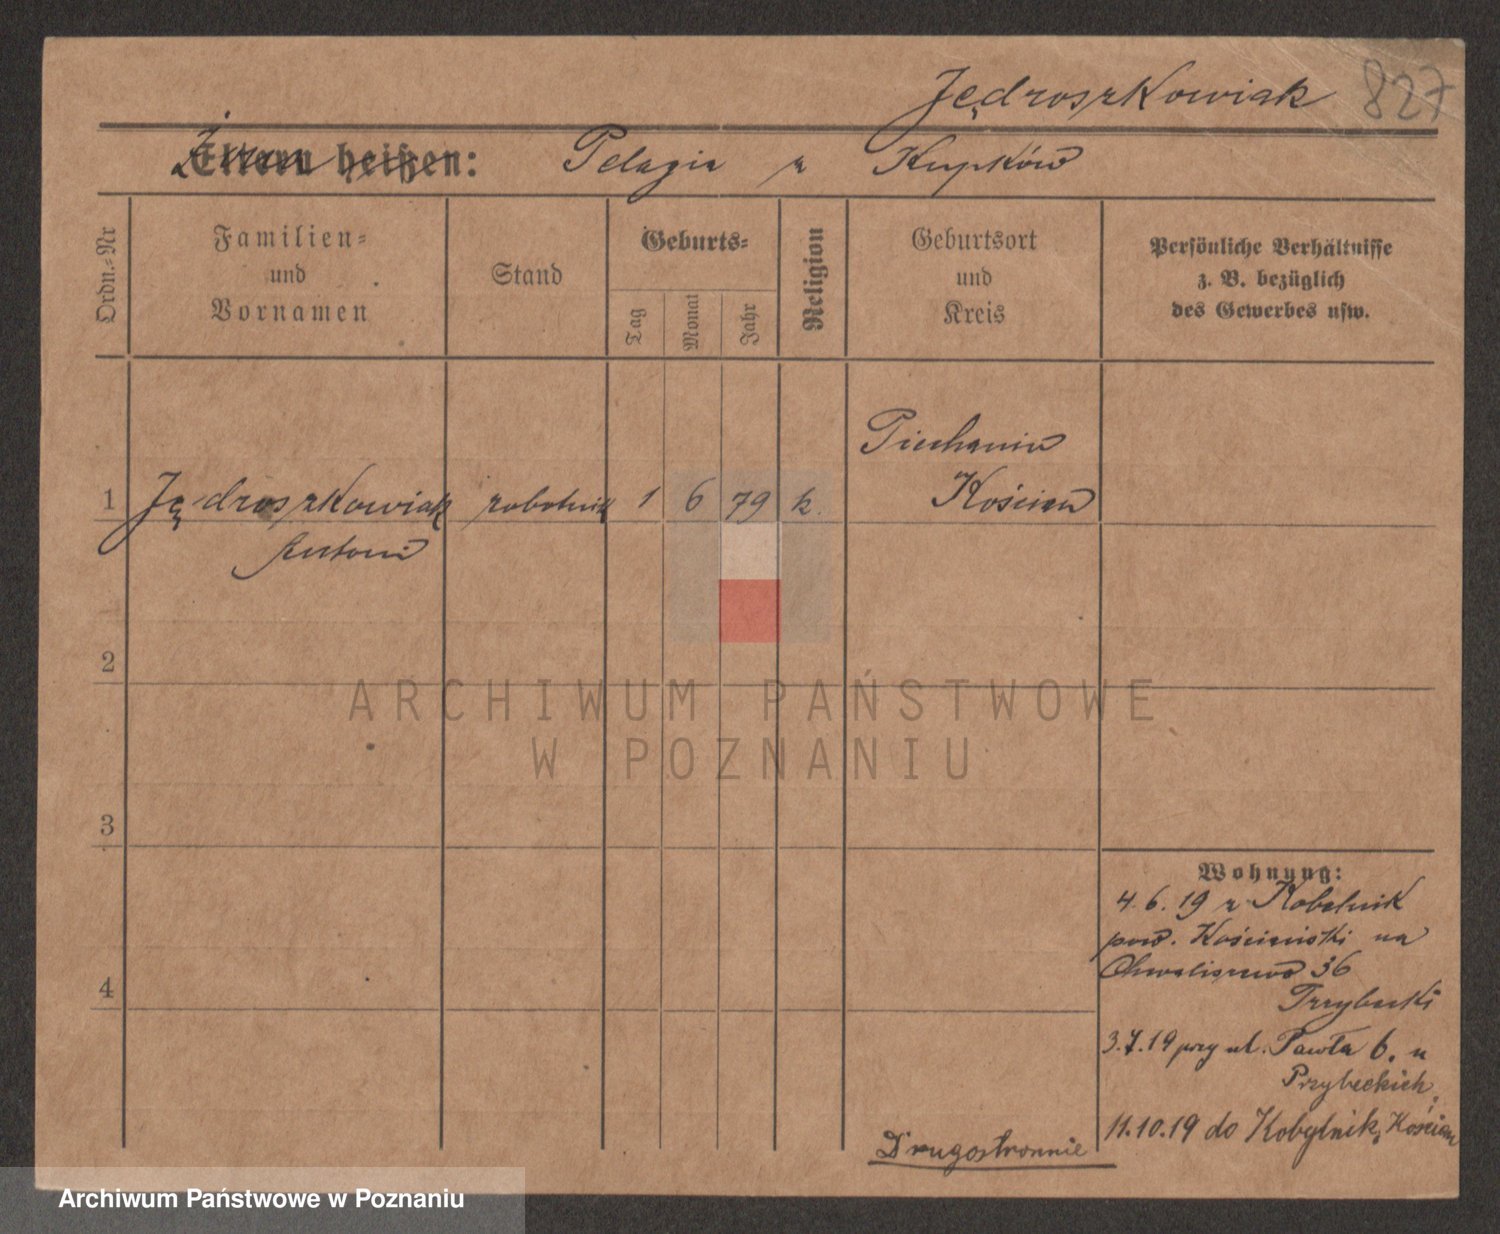 Jędroszkowiak 827
Żona
Eltern heißen: Pelagia z Kupków
Ordn.-Nr
Familien-
und
Vornamen
Stand
Geburts-
Tag
Monat
Jahr
Religion
Geburtsort
und
Kreis
Persönliche Verhältnisse
z. B. bezüglich
des Gewerbes usw.
Piechanin
1 Jędroszkowiak robotnik 1 6 79 k. Kościan
Antoni
2
3
4
Wohnung:
4.6.19 z Kobelnik
pow. Kościański na
Chwaliszewo 36
Przybecki
3.7.19 przy ul. Pawła 6. u
Przybeckich,
11.10.19 do Kobylnik, Kościan
Drugostronnie
ARCHIWUM PAŃSTWOWE
W POZNANIU
Archiwum Państwowe w Poznaniu